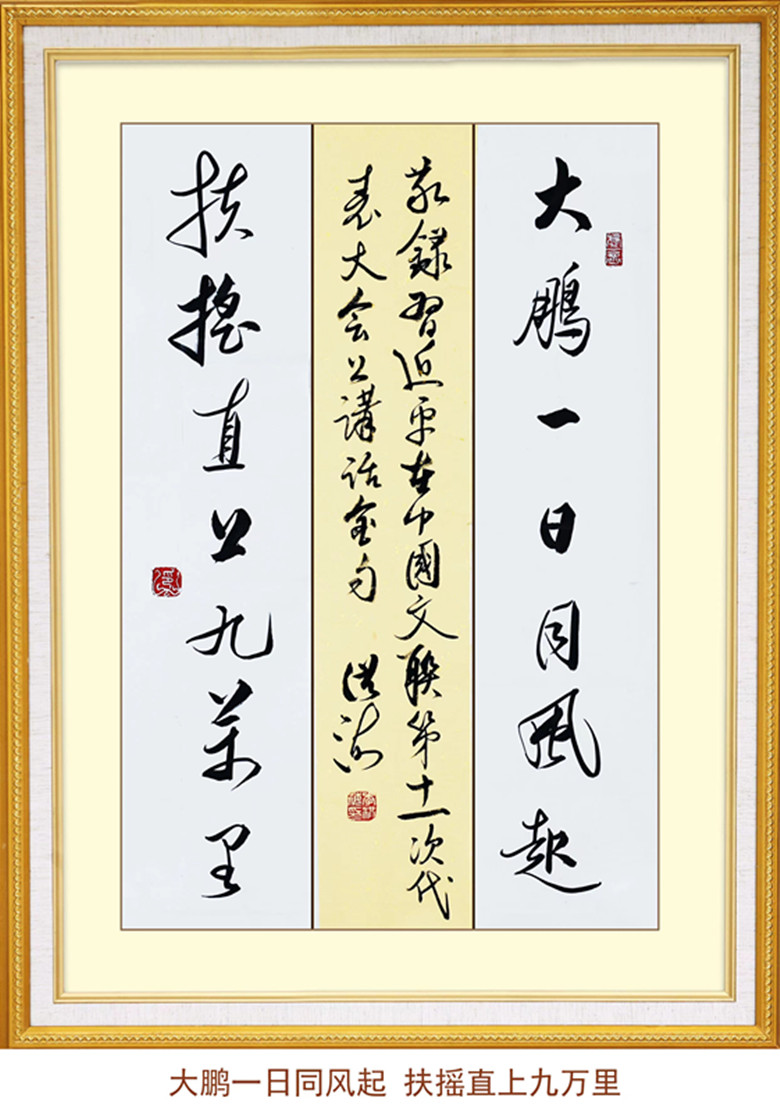 大鹏一日同风起
敬録習近平在中國文联第十一次代
表大会上講话金句
扶摇直上九萬里
大鹏一日同风起 扶摇直上九万里